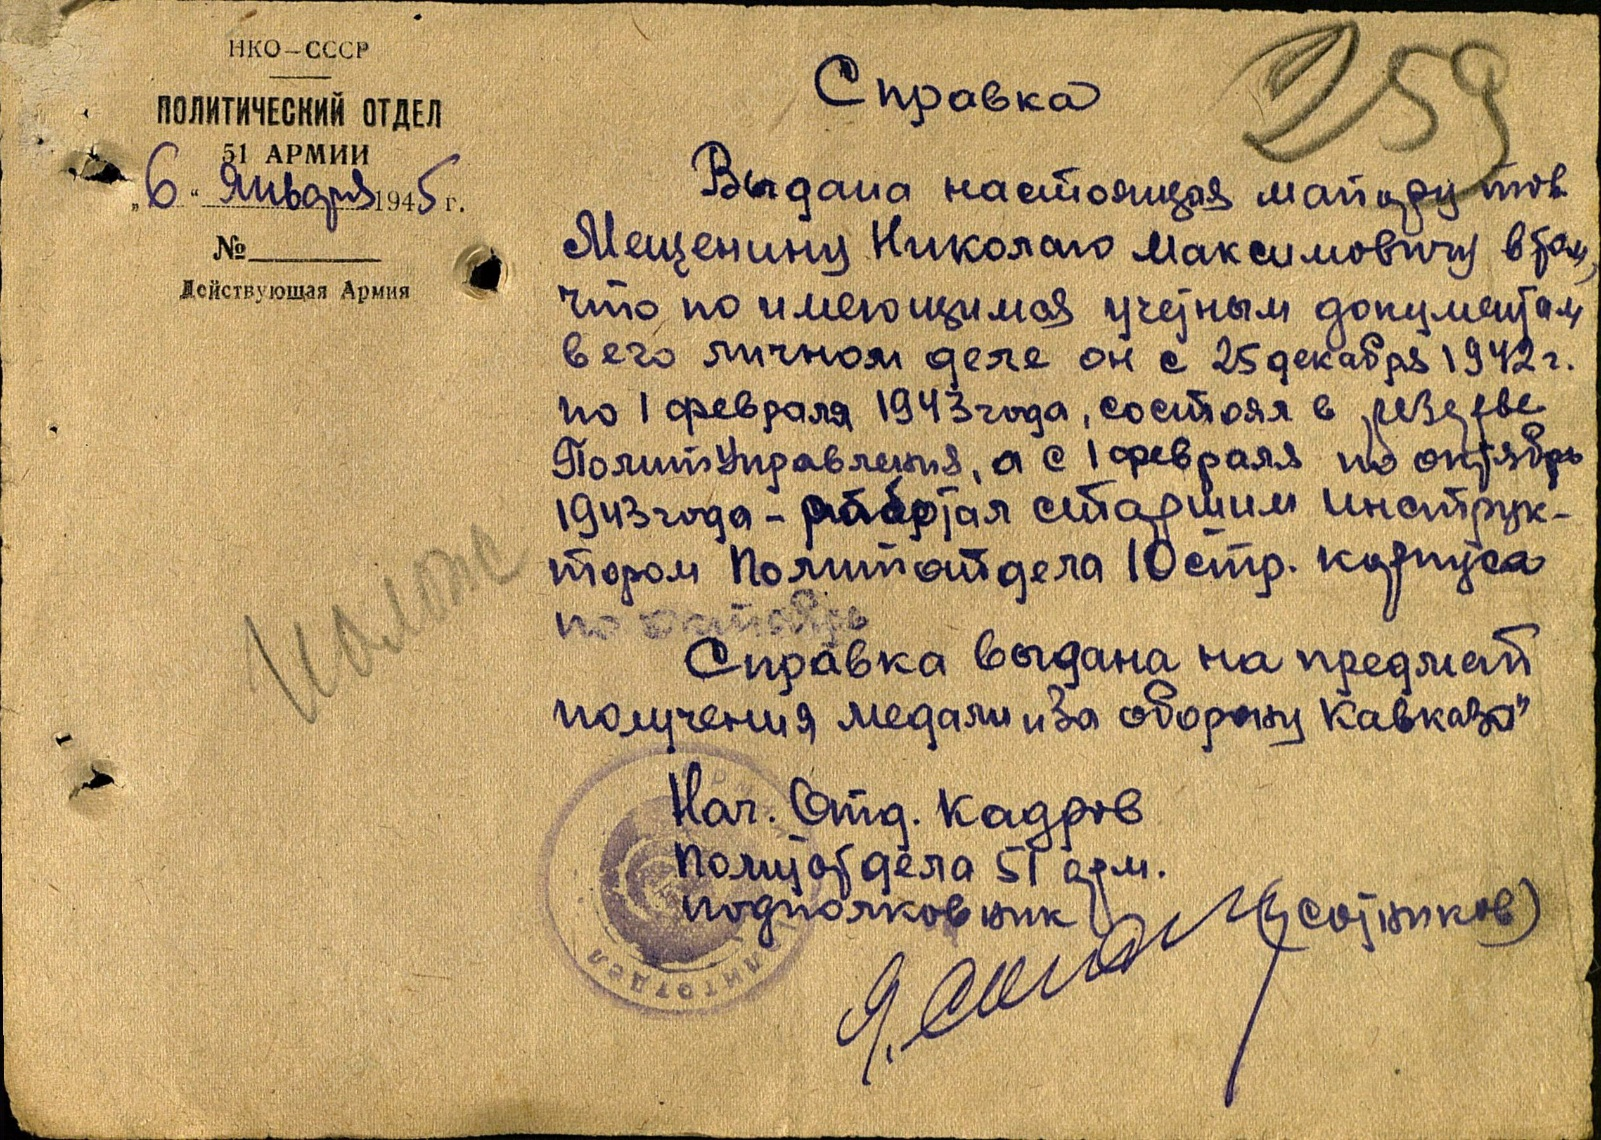 НКО–СССР
ПОЛИТИЧЕСКИЙ ОТДЕЛ
51 АРМИИ
„6“ Января 1945 г.
№
Действующая Армия
259
Справка
Выдана настоящая майору тов.
Мещенину Николаю Максимовичу в том,
что по имеющимся учетным документам
в его личном деле он с 25 декабря 1942 г.
по 1 февраля 1943 года, состоял в резерве
ПолитУправления, а с 1 февраля по октябрь
1943 года – работал старшим инструк-
тором Политотдела 10 стр. корпуса
по октябрь
Справка выдана на предмет
получения медали „За оборону Кавказа"
полож
Нач. Отд. Кадров
Политотдела 51 арм.
подполковник (Сотников)
ПОЛИТОТДЕЛ